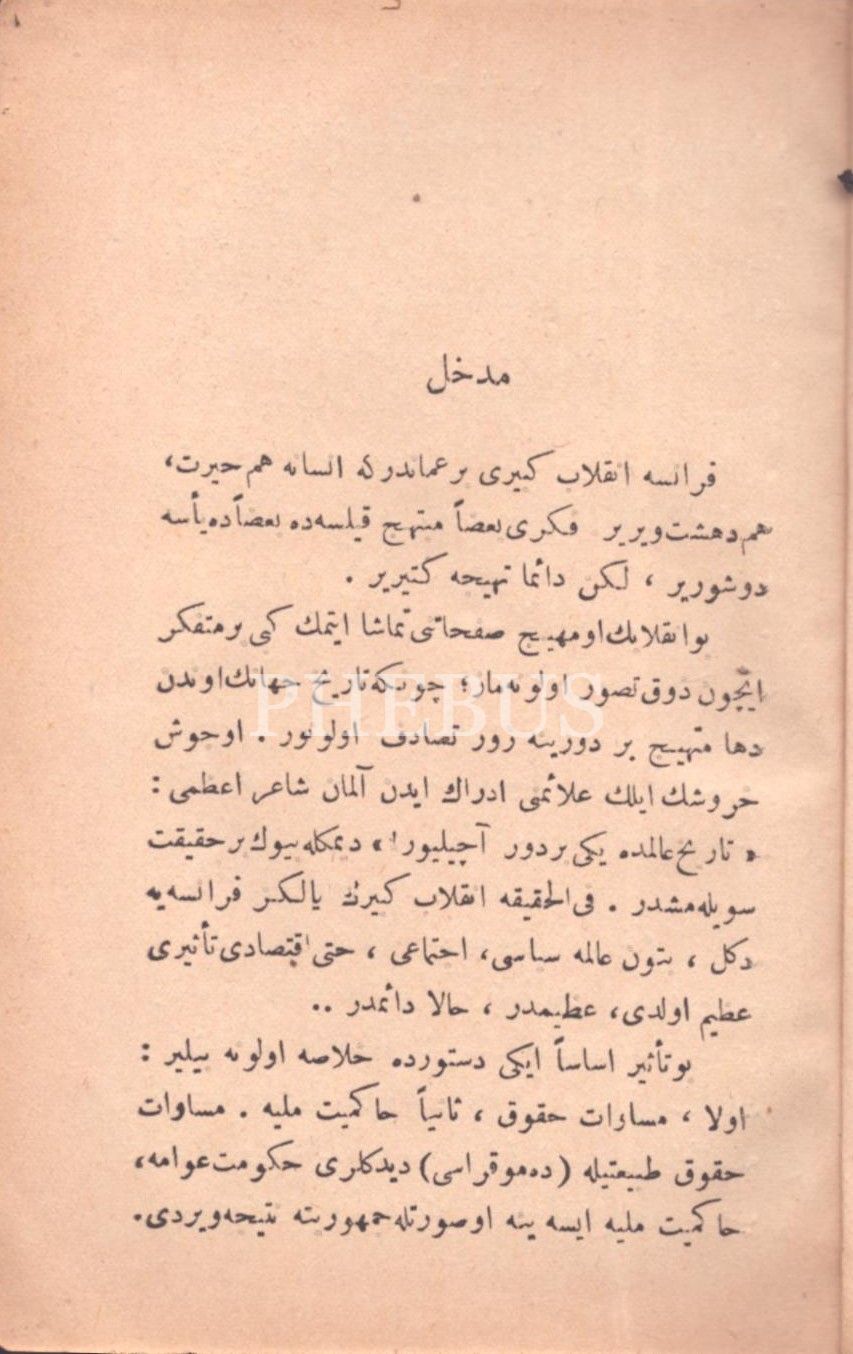 مدخل
فرانسه انقلاب كبيرى بر عماندركه انسانه هم حيرت،
هم دهشت ويرير فكرى بعضاً متهيج قيلسه ده بعضاً ده يأسه
دوشورير ، لكن دائما تهيجه كتيرير .
بو انقلابك او مهيج صفحاتنى تماشا ايتمك كبى بر متفكر
ايچون ذوق تصور اولونه ماز؛ چونكه تاريخ جهانك اوندن
دها متهيج بر دورينه زور تصادف اولونور . او جوش
خروشك ايلك علائمنى ادراك ايدن آلمان شاعر اعظمى :
« تاريخ عالمده يكى بر دور آچيليور! » ديمكله بيوك بر حقيقت
سويله مشدر . فى الحقيقه انقلاب كبيرك يالكز فرانسه يه
دكل ، بتون عالمه سياسى، اجتماعى ، حتى اقتصادى تأثيرى
عظيم اولدى، عظيمدر ، حالا دائمدر ..
بو تأثير اساساً ايكى دستورده خلاصه اولونه بيلير :
اولا ، مساوات حقوق ، ثانياً حاكميت مليه . مساوات
حقوق طبيعتيله (ده موقراسى) ديدكلرى حكومت عوامه،
حاكميت مليه ايسه ينه او صورتله جمهوريته نتيجه ويردى.
PHEBUS